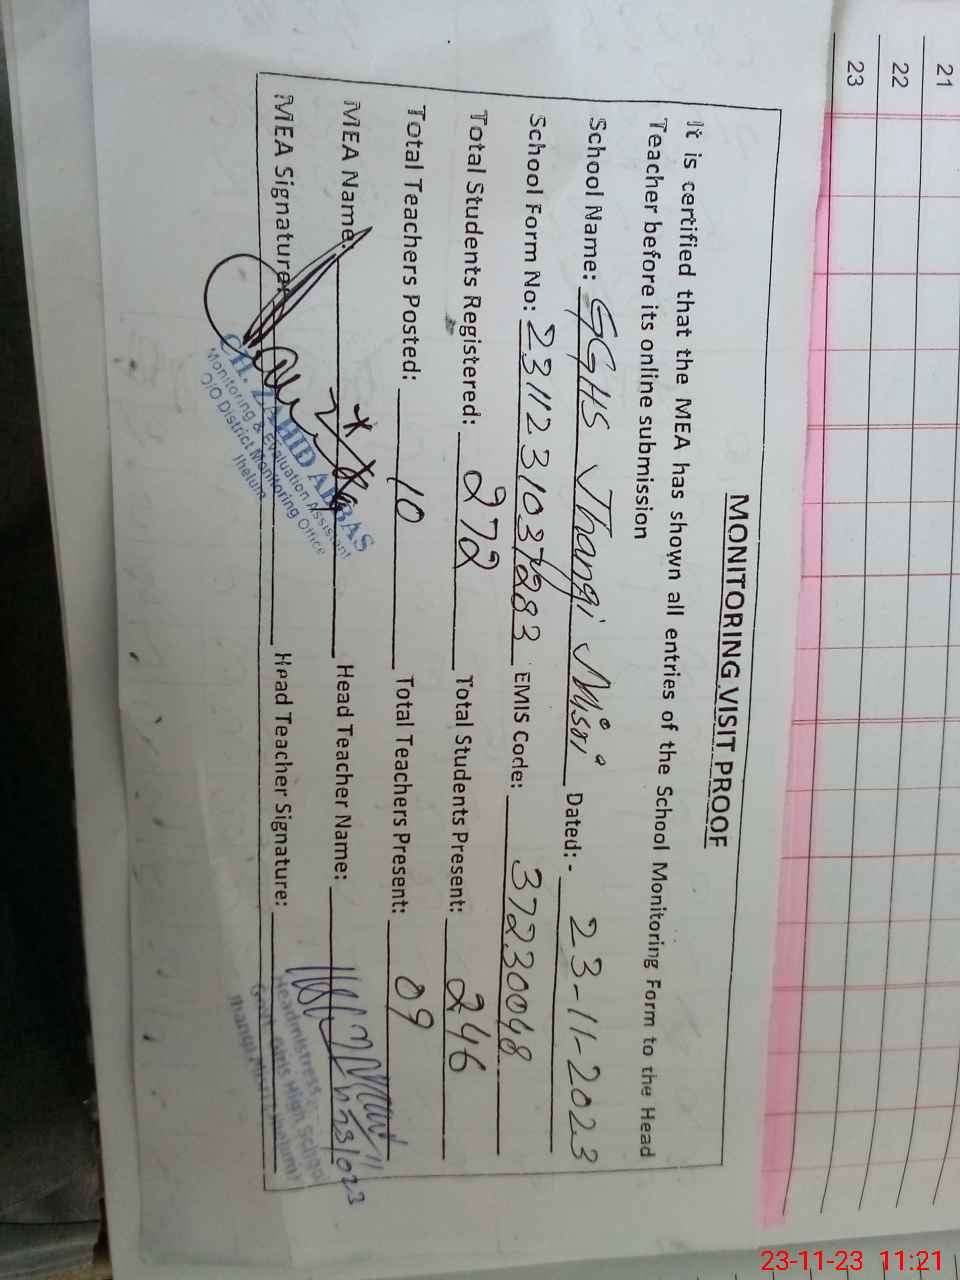 21
22
23
MONITORING VISIT PROOF
It is certified that the MEA has shown all entries of the School Monitoring Form to the Head
Teacher before its online submission
School Name: GGHS Jhangi Misri Dated:- 23-11-2023
School Form No: 2311231037283 EMIS Code: 37230048
Total Students Registered: 272 Total Students Present: 246
Total Teachers Posted: 10 Total Teachers Present: 09
MEA Name: Head Teacher Name:
MEA Signature: Head Teacher Signature:
CH. ZAHID ABBAS
Monitoring & Evaluation Assistant
O/O District Monitoring Office
Jhelum
Headmistress
Govt. Girls High School
23-11-23 11:21